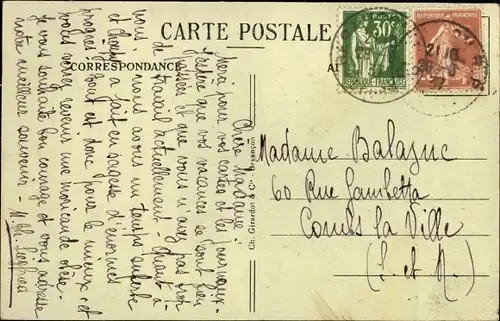 CARTE POSTALE
CORRESPONDANCE
Chère Madame,
Merci pour vos cartes et les journaux.
J'espère que vos vacances se sont bien
passées et que vous n'avez pas trop
de travail actuellement. Quant à
nous, nous avons un temps superbe
et a fait en sagesse d'énormes
progrès. Tout est donc pour le mieux, et
vous verrez revenir une obèse.
Je vous souhaite bon courage et vous adresse
notre meilleur souvenir.
Ch. Girardot & Cie, Besançon
POSTES
30c
REPUBLIQUE FRANÇAISE
REPUBLIQUE FRANÇAISE
Madame Balazuc
60 Rue Gambetta
Combs la Ville
(S. et M.)